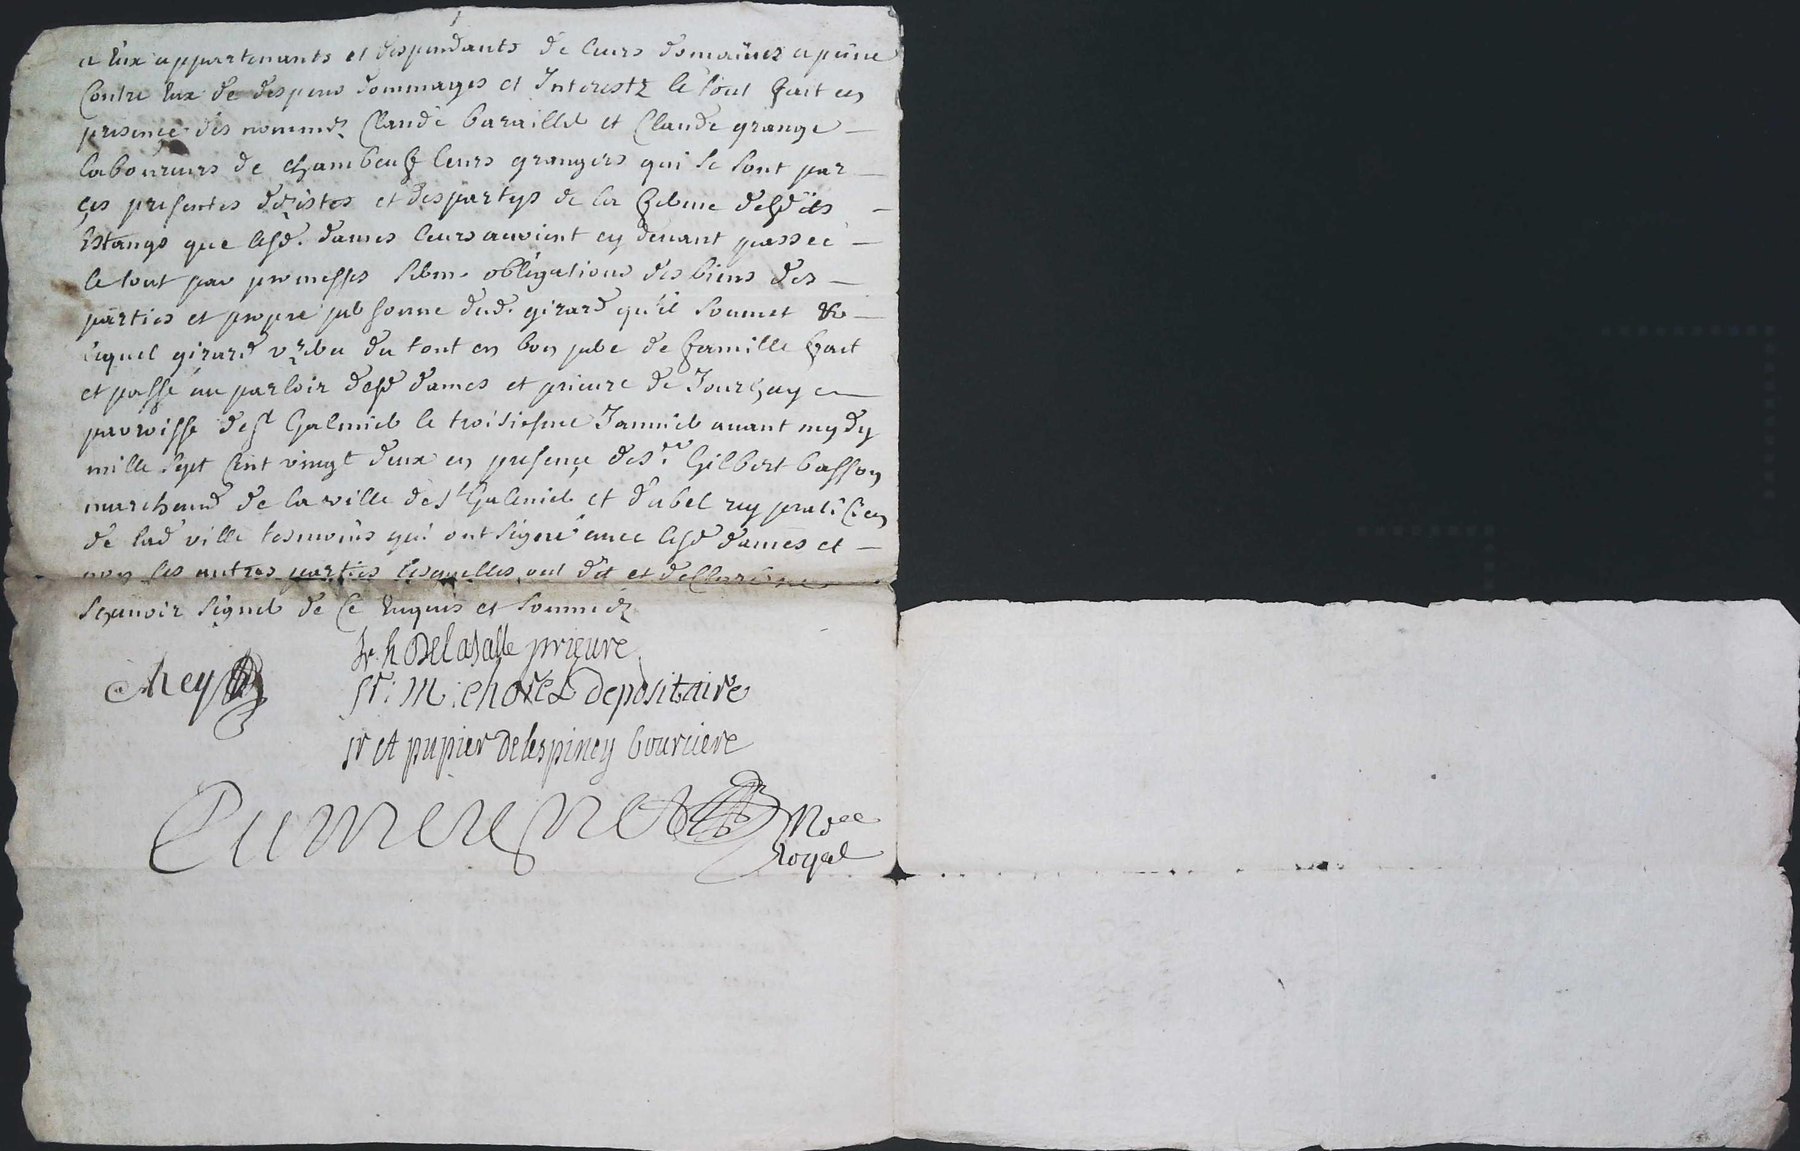 a eux appartenants et despendants de leurs domaines a peine
Contre eux de despens dommages et Interestz le tout fait en
presence des nommez Claude baraillel et Claude grange
laboureurs de chambeuf leurs grangers qui se sont par
ces presentes desistes et despartys de la ferme desds
Estangs que lesd. dames leurs avoient cy devant passee
le tout par promesses obligations des biens des
parties et propre personne dud. girard qu'il soumet &c
lequel girard du tout en bon pere de famille fait
et passé au parloir desd dames et prieure de Jourssey en
parroisse de st Galmier le troisiesme Janvier avant mydy
mille sept cent vingt deux en presence de sr. Gilbert basson
marchand de la ville de st Galmier et d'abel rey praticien
de lad ville tesmoins qui ont signé avec lesd dames et
non les autres parties lesquelles ont dit et desclaré ne
scavoir signer de ce enquis et sommez
Rey
Sr. h Delasalle prieure
sr. M. chovel depositaire
sr et pupier de lespiney boursiere
Cumerenot Nore
Royal